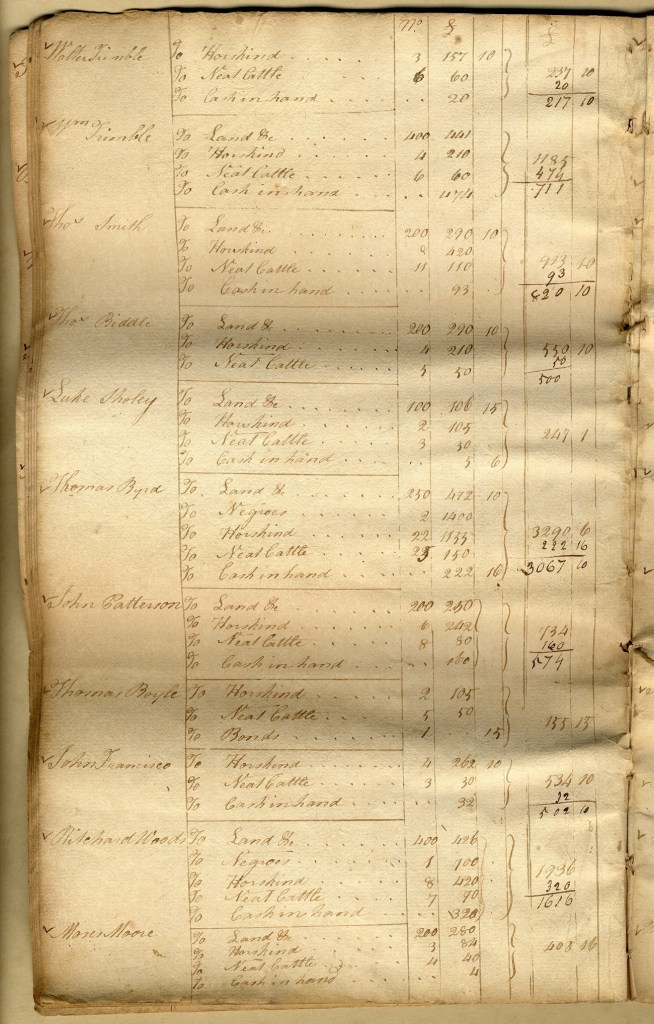 No. £ £
Walter Trimble To Horskind 3 157 10
To Neat Cattle 6 60 237 10
To Cash in hand 20 20
217 10
Wm Trimble To Land &c 400 441
To Horskind 4 210 1185
To Neat Cattle 6 60 474
To Cash in hand 474 711
Thos Smith To Land &c 200 290 10
To Horskind 8 420
To Neat Cattle 11 110 913 10
To Cash in hand 93 93
820 10
Thos Biddle To Land &c 200 290 10
To Horskind 4 210 550 10
To Neat Cattle 5 50 50
500
Luke Sholey To Land &c 100 106 15
To Horskind 2 105
To Neat Cattle 3 30 247 1
To Cash in hand 5 6
Thomas Byrd To Land &c 250 472 10
To Negroes 2 1400
To Horskind 22 1155 3290 6
To Neat Cattle 25 150 222 16
To Cash in hand 222 16 3067 10
John Patterson To Land &c 200 250
To Horskind 6 242 734
To Neat Cattle 8 80 160
To Cash in hand 160 574
Thomas Boyle To Horskind 2 105
To Neat Cattle 5 50 155 15
To Bonds 1 15
John Francisco To Horskind 4 262 10
To Neat Cattle 3 30 534 10
To Cash in hand 32 32
502 10
Ritchard Woods To Land &c 400 426
To Negroes 1 700
To Horskind 8 420 1936
To Neat Cattle 7 70 320
To Cash in hand 320 1616
Moses Moore To Land &c 200 280
To Horskind 3 84 408 16
To Neat Cattle 4 40
To Cash in hand 4